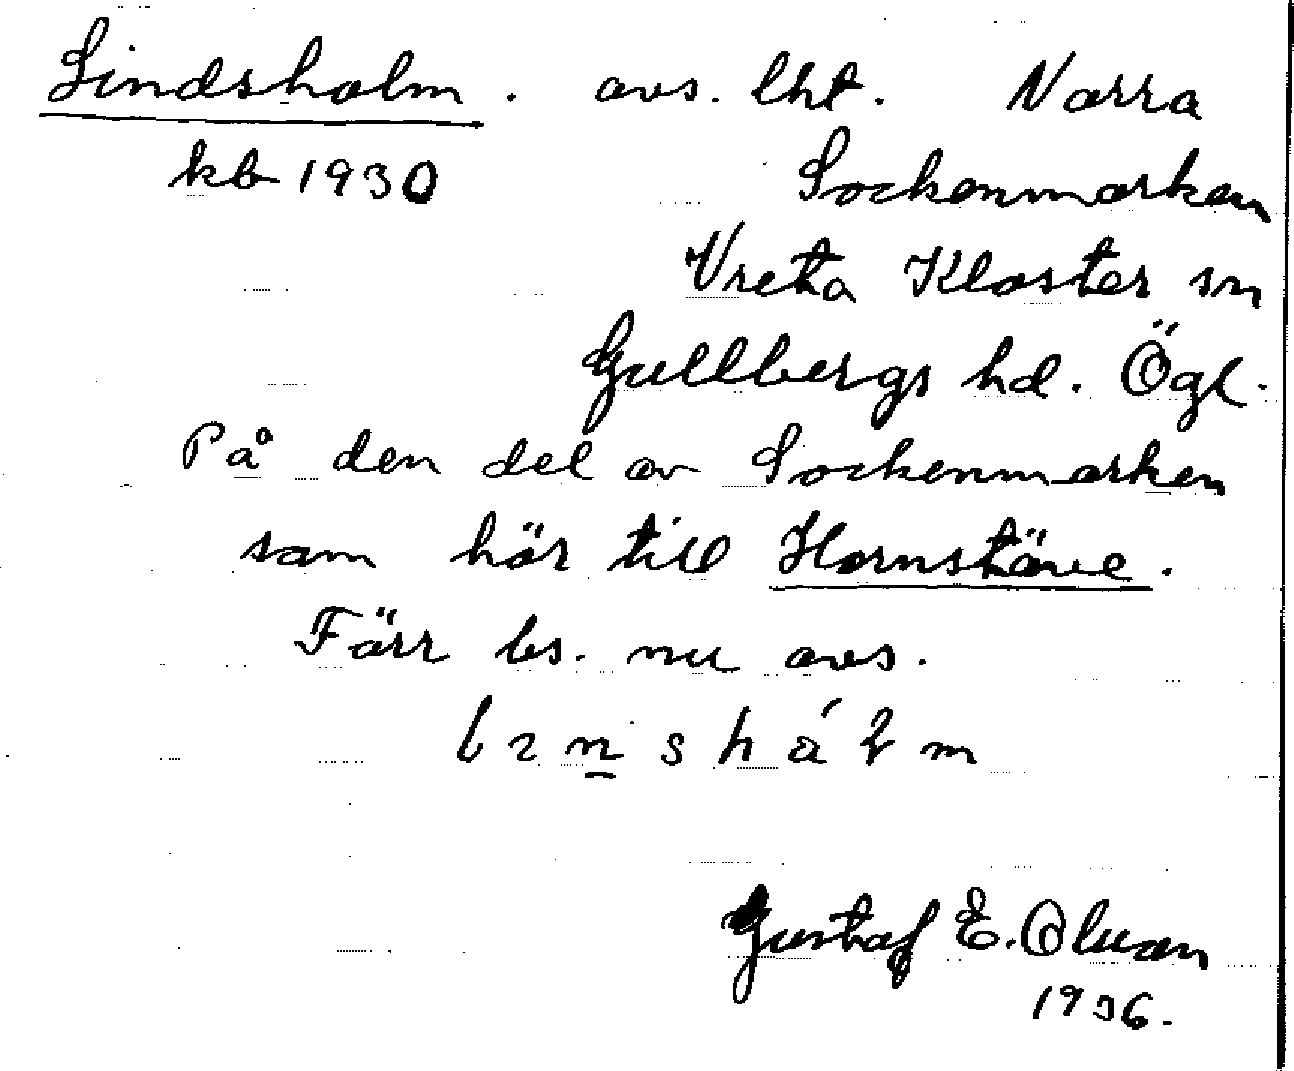 Lindsholm. avs. lht. Norra
kb 1930 Sockenmarken
Vreta Kloster sn
Gullbergs hd. Ögl.
På den del av Sockenmarken
som hör till Hornstäve.
Förr bs. nu avs.
Gustaf E. Olsson
1936.